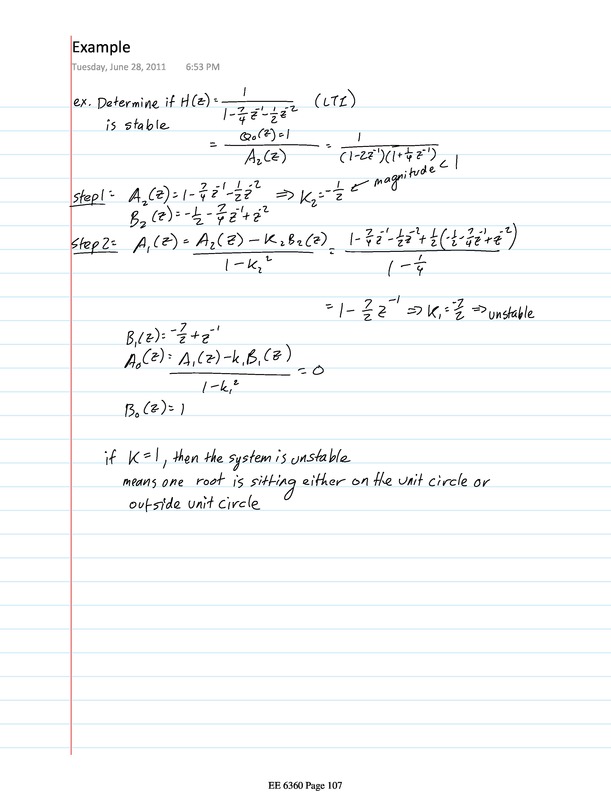 Example
Tuesday, June 28, 2011 6:53 PM
ex. Determine if H(z) = 1 / (1 - 7/4 z^-1 - 1/2 z^-2) (LTI)
is stable
= Q₀(z)=1 / A₂(z) = 1 / ((1-2z^-1)(1+1/4 z^-1))
step1: A₂(z) = 1 - 7/4 z^-1 - 1/2 z^-2 ⇒ K₂ = -1/2 ← magnitude < 1
B₂(z) = -1/2 - 7/4 z^-1 + z^-2
step2: A₁(z) = (A₂(z) - K₂B₂(z)) / (1 - K₂²) = (1 - 7/4 z^-1 - 1/2 z^-2 + 1/2(-1/2 - 7/4 z^-1 + z^-2)) / (1 - 1/4)
= 1 - 7/2 z^-1 ⇒ K₁ = -7/2 ⇒ unstable
B₁(z) = -7/2 + z^-1
A₀(z) = (A₁(z) - k₁B₁(z)) / (1 - k₁²) = 0
B₀(z) = 1
if K = 1, then the system is unstable
means one root is sitting either on the unit circle or
outside unit circle
EE 6360 Page 107